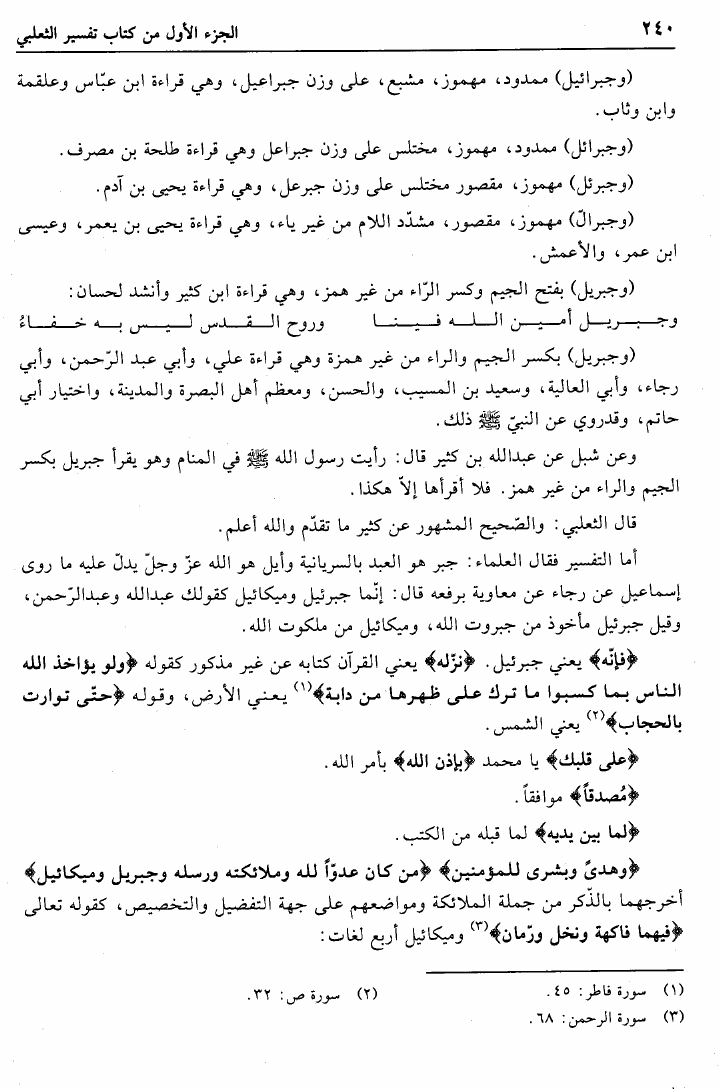 ٢٤٠ الجزء الأول من كتاب تفسير الثعلبي
(وجبرائيل) ممدود، مهموز، مشبع، على وزن جبراعيل، وهي قراءة ابن عبّاس وعلقمة
وابن وثاب.
(وجبرائل) ممدود، مهموز، مختلس على وزن جبراعل وهي قراءة طلحة بن مصرف.
(وجبرئل) مهموز، مقصور مختلس على وزن جبرعل، وهي قراءة يحيى بن آدم.
(وجبرالّ) مهموز، مقصور، مشدّد اللام من غير ياء، وهي قراءة يحيى بن يعمر، وعيسى
ابن عمر، والأعمش.
(وجبريل) بفتح الجيم وكسر الرّاء من غير همز، وهي قراءة ابن كثير وأنشد لحسان:
وجبريل أمين الله فينا وروح القدس ليس به خفاءُ
(وجبريل) بكسر الجيم والراء من غير همزة وهي قراءة علي، وأبي عبد الرّحمن، وأبي
رجاء، وأبي العالية، وسعيد بن المسيب، والحسن، ومعظم أهل البصرة والمدينة، واختيار أبي
حاتم، وقدروي عن النبيّ ﷺ ذلك.
وعن شبل عن عبدالله بن كثير قال: رأيت رسول الله ﷺ في المنام وهو يقرأ جبريل بكسر
الجيم والراء من غير همز. فلا أقرأها إلاّ هكذا.
قال الثعلبي: والصّحيح المشهور عن كثير ما تقدّم والله أعلم.
أما التفسير فقال العلماء: جبر هو العبد بالسريانية وأيل هو الله عزّ وجلّ يدلّ عليه ما روى
إسماعيل عن رجاء عن معاوية برفعه قال: إنّما جبرئيل وميكائيل كقولك عبدالله وعبدالرّحمن،
وقيل جبرئيل مأخوذ من جبروت الله، وميكائيل من ملكوت الله.
﴿فإنّه﴾ يعني جبرئيل. ﴿نزّله﴾ يعني القرآن كتابه عن غير مذكور كقوله ﴿ولو يؤاخذ الله
الناس بما كسبوا ما ترك على ظهرها من دابة﴾(١) يعني الأرض، وقوله ﴿حتّى توارت
بالحجاب﴾(٢) يعني الشمس.
﴿على قلبك﴾ يا محمد ﴿بإذن الله﴾ بأمر الله.
﴿مُصدقاً﴾ موافقاً.
﴿لما بين يديه﴾ لما قبله من الكتب.
﴿وهدىً وبشرى للمؤمنين﴾ ﴿من كان عدوّاً لله وملائكته ورسله وجبريل وميكائيل﴾
أخرجهما بالذّكر من جملة الملائكة ومواضعهم على جهة التفضيل والتخصيص، كقوله تعالى
﴿فيهما فاكهة ونخل ورّمان﴾(٣) وميكائيل أربع لغات:
(١) سورة فاطر: ٤٥. (٢) سورة ص: ٣٢.
(٣) سورة الرحمن: ٦٨.